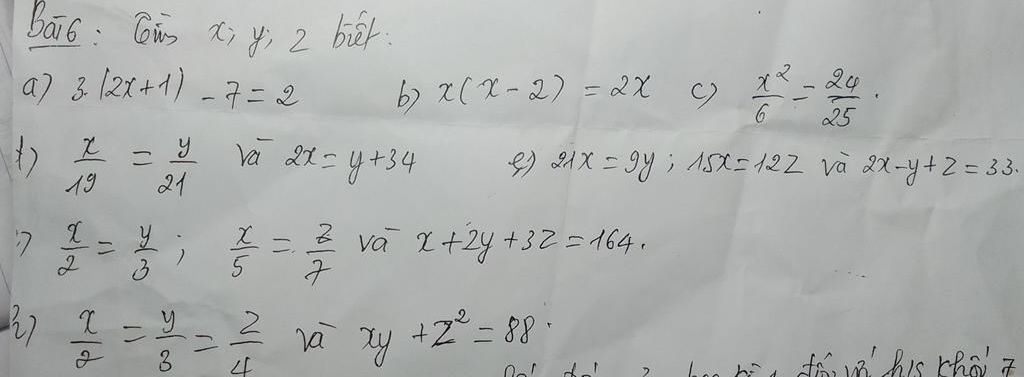 Bài 6: Tìm x; y; z biết:
a) 3.(2x+1) - 7 = 2 b) x(x-2) = 2x c) x²/6 = 24/25.
x/19 = y/21 và 2x = y+34 e) 21x = 9y; 15x = 12z và 2x-y+z = 33.
x/2 = y/3; x/5 = z/7 và x+2y+3z = 164.
x/2 = y/3 = z/4 và xy + z² = 88.
đối với h/s khối 7